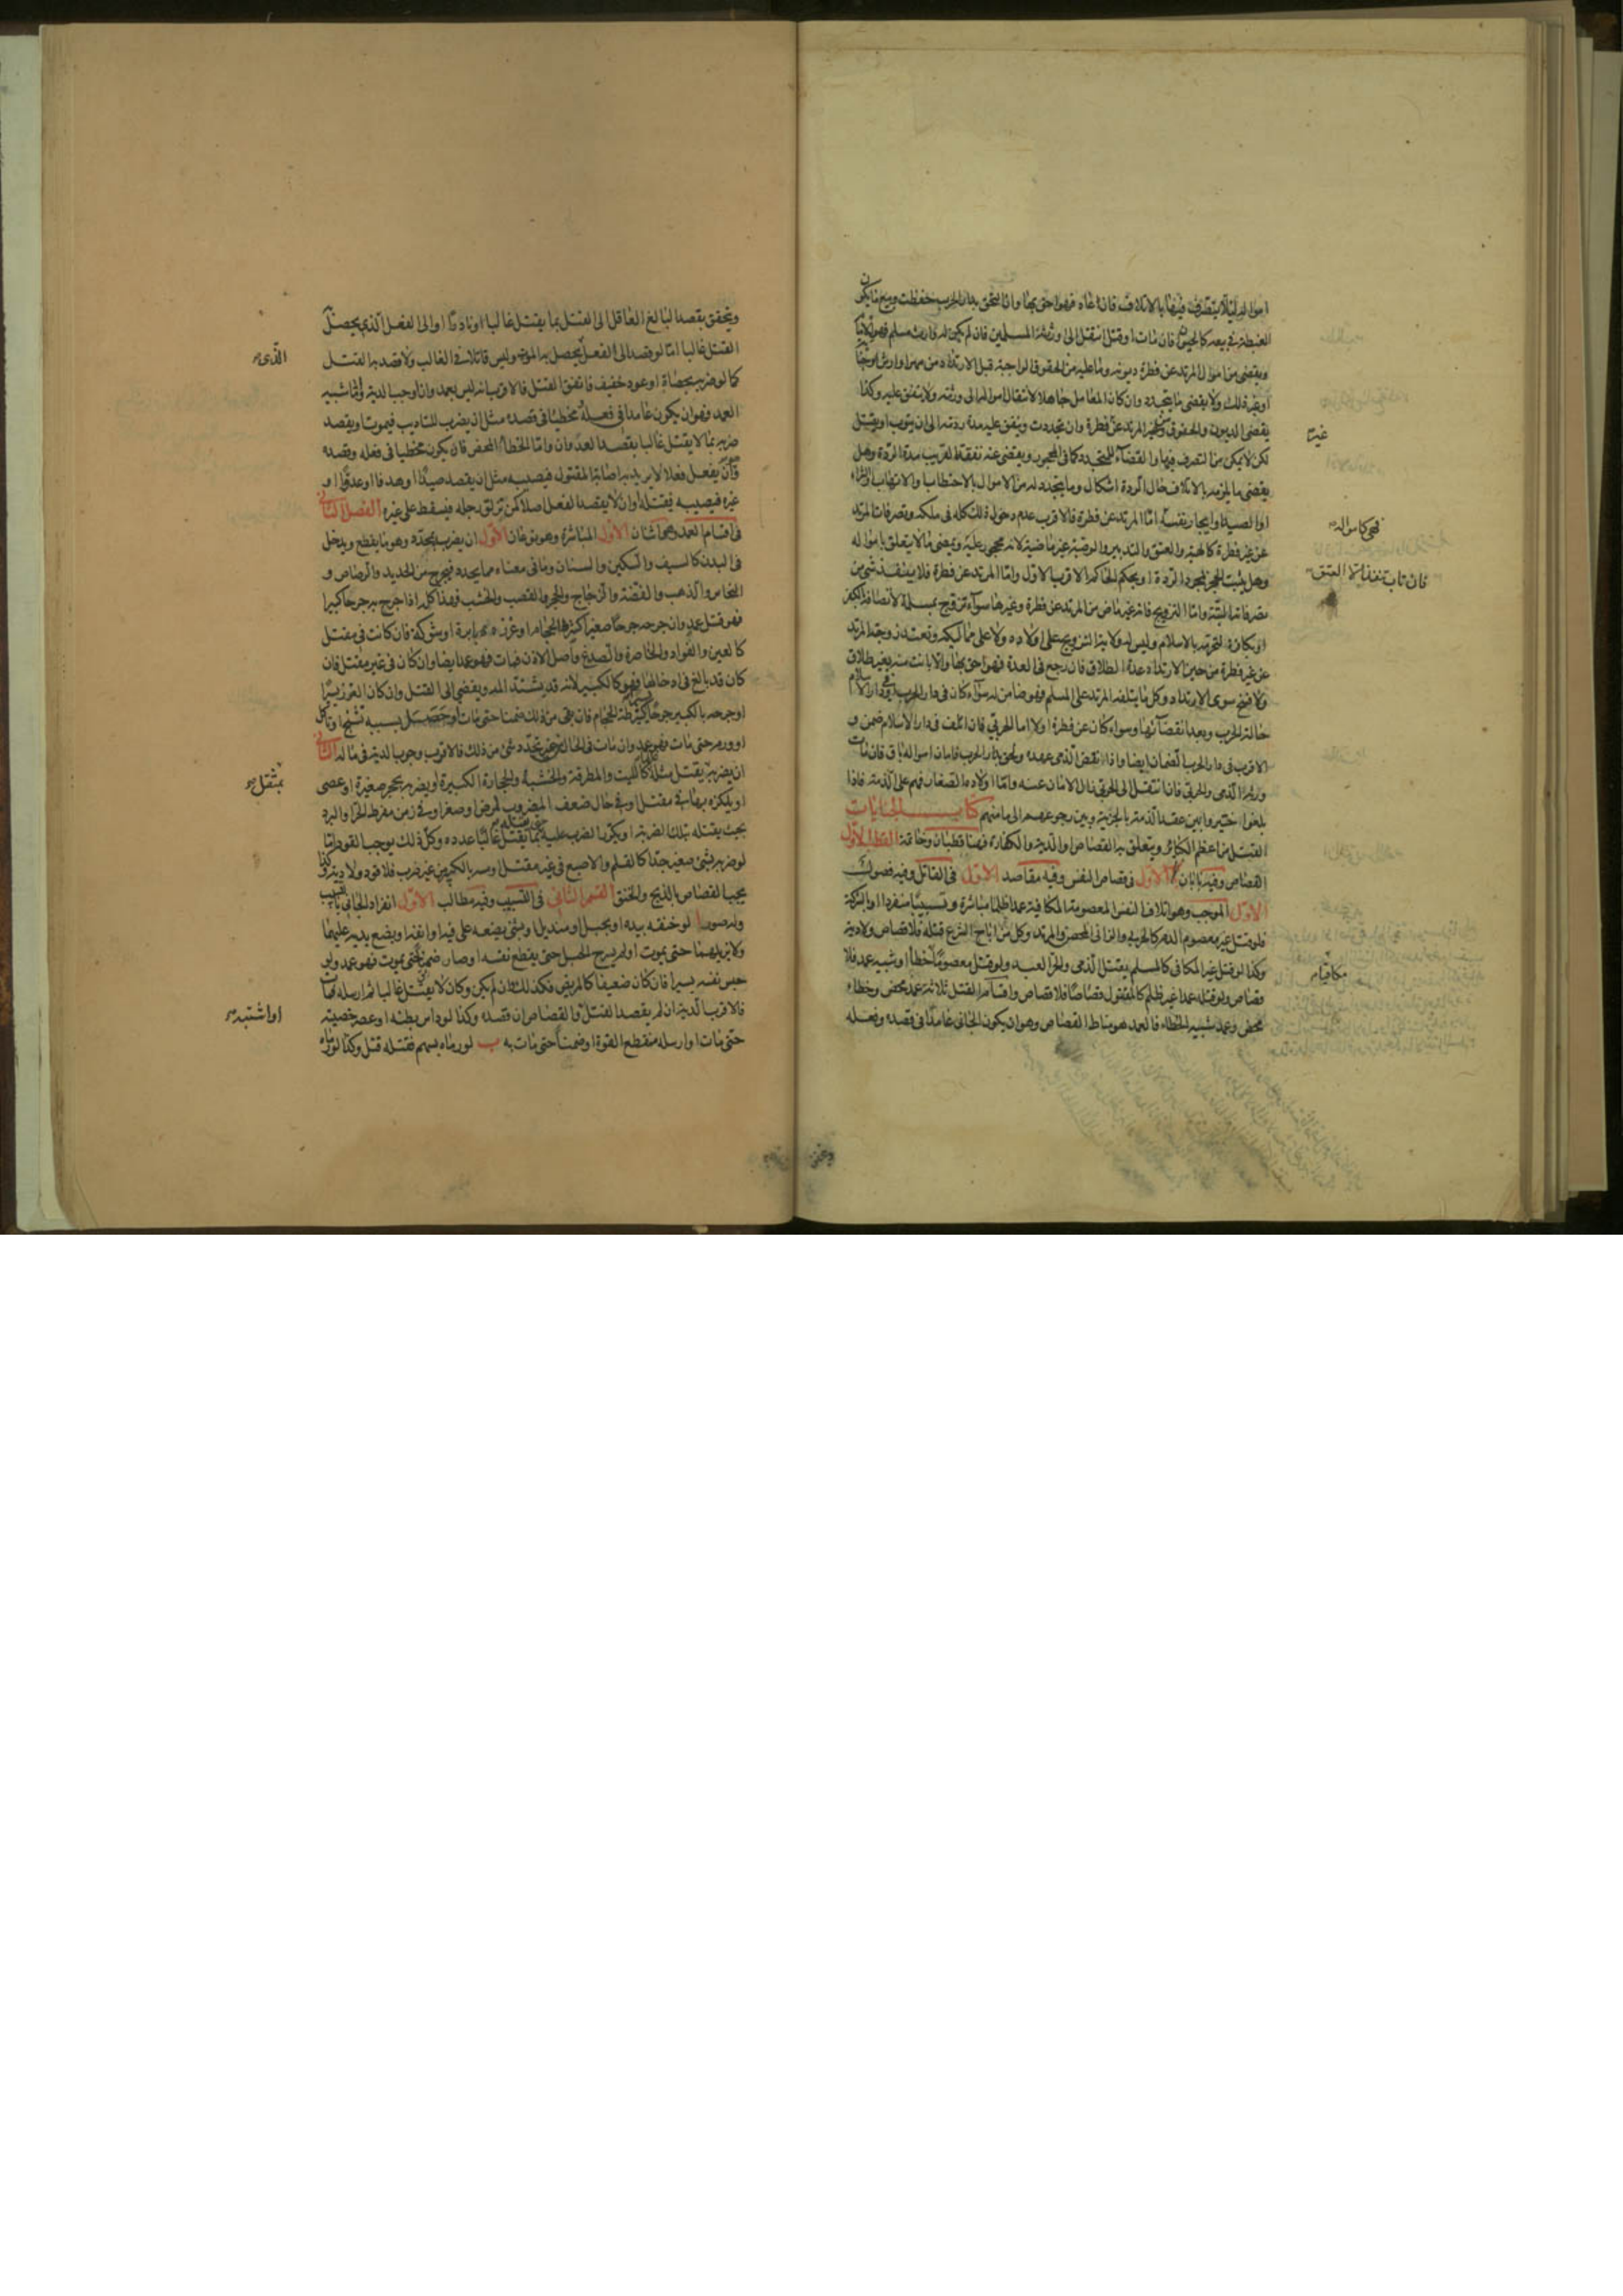 امواله لئلا يتصرف فيها بالاتلاف فان عاد فهو احق بها وان التحق بدار الحرب حفظت وبيع ما يكون
الغبطة في بيعه كالحيوان فان مات او قتل انتقل الى ورثته المسلمين فان لم يكن له وارث مسلم فهو للامام
ويقضى من اموال المرتد عن فطرة ديونه وما عليه من الحقوق الواجبة قبل الارتداد من مهر او ارش جناية
او غير ذلك ولا يقضى ما يتجدد وان كان المعامل جاهلا لانتقال امواله الى ورثته ولا ينفق عليه وكذا
يقضى الديون والحقوق عن غير المرتد عن فطرة وان تجددت وينفق عليه مدة ردته الى ان يتوب او يقتل
غير
لكن لا يمكن من التصرف فيها والقضاء للمتجددة كما في المحجور ويقضى عنه نفقة القريب مدة الردة وهل
يقضى ما يلزمه بالاتلاف حال الردة اشكال وما يتجدد له من الاموال بالاحتطاب والاتهاب والشراء
او الصيد او ايجار نفسه اما المرتد عن فطرة فالاقرب عدم دخول ذلك كله في ملكه وتصرفات المرتد
فهي كامواله
عن غير فطرة كالهبة والعتق والتدبير والوصية غير ماضية لانه محجور عليه ويمضي ما لا يتعلق بامواله
فان تاب تنفذ الا العتق
وهل يثبت الحجر بمجرد الردة او بحكم الحاكم الاقرب الاول واما المرتد عن فطرة فلا ينفذ شيء من
تصرفاته البتة واما التزويج فانه غير ماض من المرتد عن فطرة وغيرها سواء تزوج بمسلمة لاتصافه بالكفر
او بكافرة لتحرمه بالاسلام وليس له ولاية التزويج على اولاده ولا على مماليكه وتعتد زوجة المرتد
عن غير فطرة من حين الارتداد عدة الطلاق فان رجع في العدة فهو احق بها والا بانت منه بغير طلاق
ولا فسخ سوى الارتداد وكل ما يتلفه المرتد على المسلم فهو ضامن له سواء كان في دار الحرب او في دار الاسلام
حالة الحرب وبعد انقضائها وسواء كان عن فطرة او لا اما الحربي فان اتلف في دار الاسلام ضمن و
الاقرب في دار الحرب الضمان ايضا واذا نقض الذمي عهده ولحق بدار الحرب فامان امواله باق فان مات
ورثه الذمي والحربي فان انتقل الى الحربي زال الامان عنه واما اولاده الصغار فهم على الذمة فاذا
بلغوا خيروا بين عقد الذمة بالجزية وبين رجوعهم الى مامنهم كتاب الجنايات
القتل من اعظم الكبائر ويتعلق به القصاص او الدية والكفارة فهنا قطبان وخاتمة القطب الاول
القصاص وفيه بابان الاول في قصاص النفس وفيه مقاصد الاول في القاتل وفيه فصول
الاول الموجب وهو اتلاف النفس المعصومة المكافية عمدا ظلما مباشرة وتسبيبا منفردا او بالشركة
فلو قتل غير معصوم الدم كالحربي والزاني المحصن والمرتد وكل من اباح الشرع قتله فلا قصاص ولا دية
وكذا لو قتل غير المكافي كالمسلم يقتل الذمي والحر العبد ولو قتل معصوما خطأ او شبيه عمد فلا
مكافيا
قصاص ولو قتله عمدا غير ظلم كالمقتول قصاصا فلا قصاص واقسام القتل ثلاثة عمد محض وخطاء
محض وعمد شبيه الخطاء فالعمد هو مناط القصاص وهو ان يكون الجاني عامدا في قصده وفعله
ويتحقق بقصد البالغ العاقل الى القتل بما يقتل غالبا او نادرا او الى الفعل الذي يحصل
القتل غالبا اما لو قصد الى الفعل يحصل به الموت وليس قاتلا في الغالب ولا قصد به القتل
الذي
كما لو ضربه بحصاة او عود خفيف فاتفق القتل فالاقرب انه ليس بعمد وان اوجب الدية واما شبيه
العمد فهو ان يكون عامدا في فعله مخطيا في قصده مثل ان يضرب للتاديب فيموت او يقصد
ضربه بما لا يقتل غالبا بقصد العدوان واما الخطأ المحض فان يكون مخطيا في فعله وقصده
وان يفعل فعلا لا يريد به اصابة المقتول فيصيبه مثل ان يقصد صيدا او هدفا او عدوا او
غيره فيصيبه فيقتله وان لا يقصد الفعل اصلا كمن تزلق رجله فيسقط على غيره الفصل الثاني
في اقسام العمد وهي اثنان الاول المباشرة وهو نوعان الاول ان يضربه بمحدد وهو ما يقطع ويدخل
في البدن كالسيف والسكين والسنان وما في معناه مما يحدد فيجرح من الحديد والرصاص و
النحاس والذهب والفضة والزجاج والحجر والقصب والخشب فهذا كله اذا جرح به جرحا كبيرا
فهو قتل عمد وان جرحه جرحا صغيرا كشرطة الحجام او غرزه بابرة او شوكة فان كانت في مقتل
كالعين والفؤاد والخاصرة والصدغ واصل الاذن فمات فهو عمد ايضا وان كان في غير مقتل فان
كان قد بالغ في ادخالها فهو كالكبير لانه قد يشتد المه ويفضي الى القتل وان كان الغرز يسيرا
او جرحه بالكبير جرحا يسيرا كشرطة الحجام فان بقي من ذلك ضمنا حتى مات او حصل بسببه تشنج او تاكل
او ورم حتى مات فهو عمد وان مات في الحال من غير تجدد شيء من ذلك فالاقرب وجوب الدية في ماله الثاني
ان يضربه يقتل مثله كاللت والمطرقة والخشبة والحجارة الكبيرة او يضربه بحجر صغيرة او عصى
بمثقل
او يلكزه بها في مقتل او في حال ضعف المضروب لمرض او صغر او في زمن مفرط الحر او البرد
بحيث يقتله بتلك الضربة او يكرر الضرب عليه بما يقتل غالبا عدده وكل ذلك يوجب القود اما
لو ضربه بشيء صغير جدا كالقلم والاصبع في غير مقتل او مسه بالكبير من غير ضرب فلا قود ولا دية وكذا
يجب القصاص بالذبح والخنق القسم الثاني في التسبيب وفيه مطالب الاول انفراد الجاني بالتسبيب
وله صور ا لو خنقه بيده او بحبل او منديل او بشيء يضعه على فيه او انفه او يضع يديه عليهما
ولا يزيلهما حتى يموت او لم يرح الحبل حتى ينقطع نفسه او صار ضمنا حتى يموت فهو عمد ولو
حبس نفسه يسيرا فان كان ضعيفا كالمريض فكذلك وان لم يكن وكان لا يقتل غالبا ثم ارسله فمات
فالاقرب الدية ان لم يقصد القتل والقصاص ان قصده وكذا لو داس بطنه او عصر خصيته
او اشتبه
حتى مات او ارسله منقطع القوة او ضمنا حتى مات به ب لو رماه بسهم فقتله قتل وكذا لو رماه